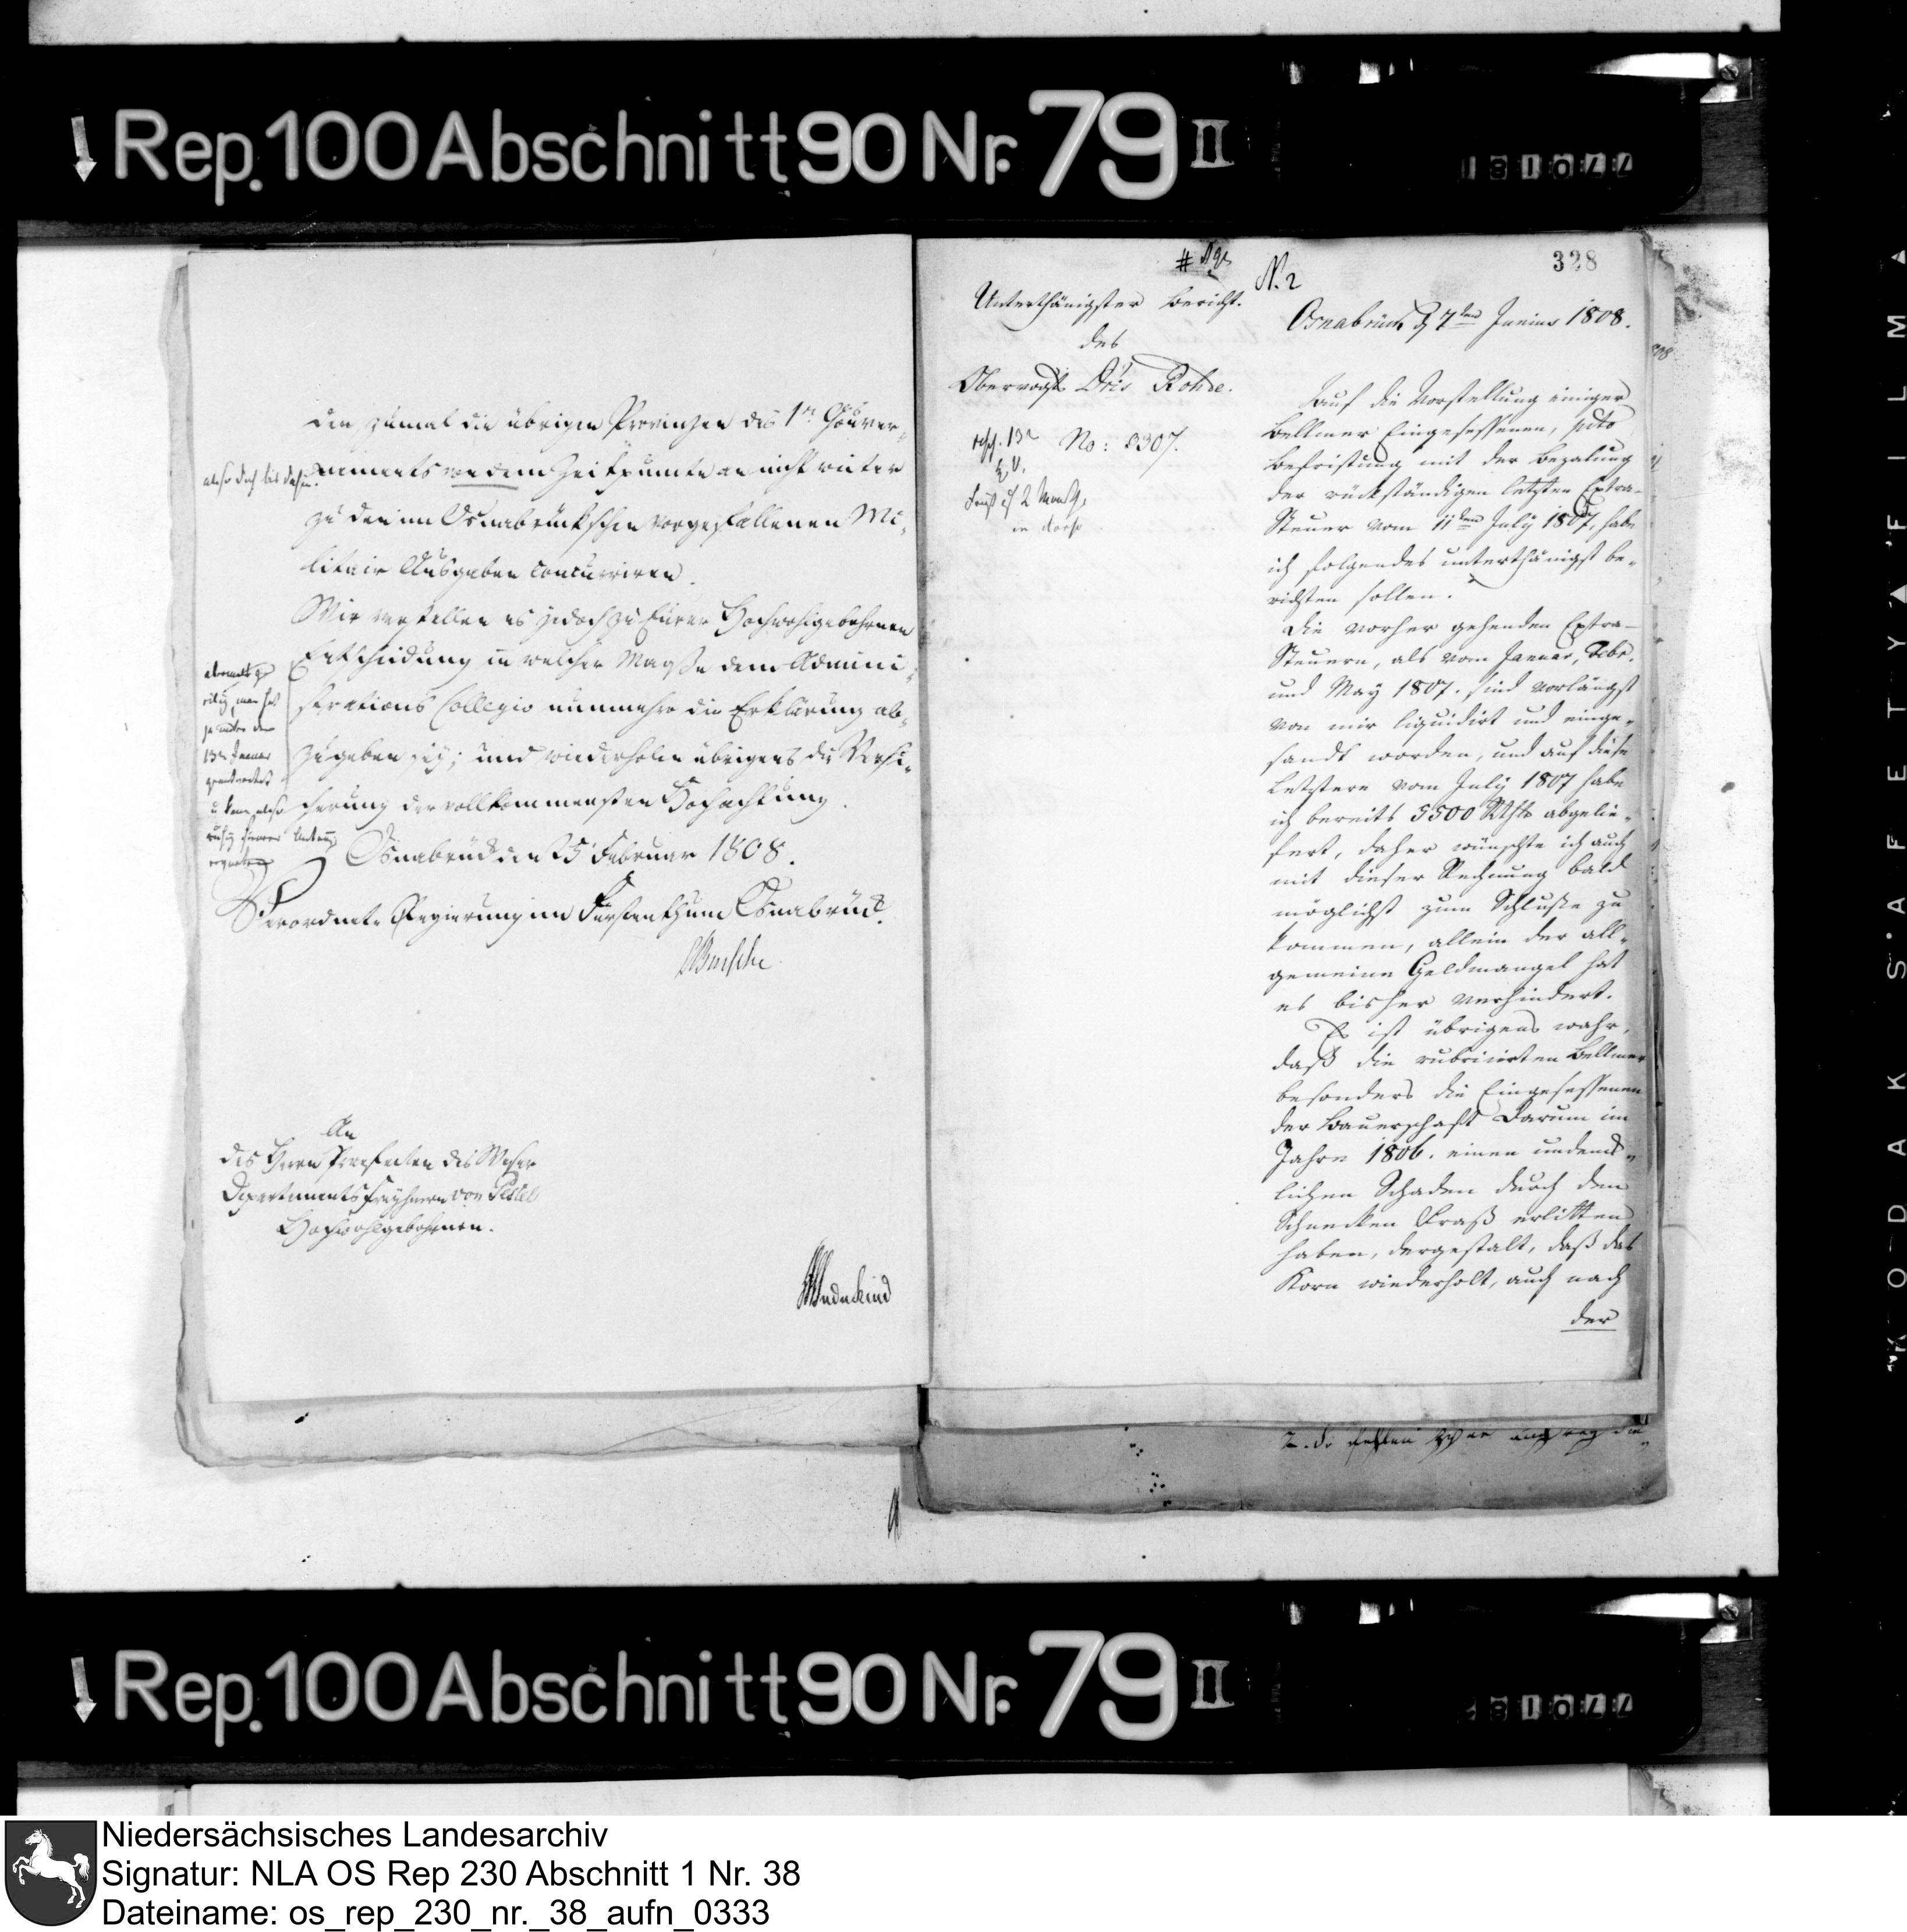 Rep. 100 Abschnitt 90 Nr. 79 II
den zumal die übrigen Provinzen des 1n Gouver-
also doch bis dahin
nements von dem Zeitpunkte an nicht weiter
zu den im Osnabrückschen vorgefallenen Mi-
litair Ausgaben concurriren.
Wir verstellen es jedoch zu Eurer Hochwohlgebohrnen
Entscheidung in welcher Maaße dem Admini-
strations Collegio nunmehro die Erklärung ab-
zugeben sey; und wiederholen übrigens die Versi-
cherung der vollkommensten Hochachtung.
man hat
ja unter dem
13n Januar
geantwortet
u. kann also
ruhig
Osnabrück den 25 Februar 1808.
Verordnete Regierung im Fürstenthum Osnabrück.
Bussche
An
des Herrn Praefecten des Weser
Departements Freyherrn von Pestel
Hochwohlgebohrnen.
328
N. 2
Unterthänigster Bericht.
des
Obervogt Dris Rohde.
No: 3307.
Osnabrück d 7ten Junius 1808.
Auf die Vorstellung einiger
Bellmer Eingesessenen, pcto
Befristung mit der Bezalung
der rückständigen letzten Extra-
Steuer vom 11ten July 1807, habe
ich folgendes unterthänigst be-
richten sollen.
Die vorher gehenden Extra-
Steuern, als vom Januar, Febr.
und May 1807. sind vorlängst
von mir liquidirt und einge-
sandt worden, und auf diese
Letztere vom July 1807 habe
ich bereits 5500 Rthlr abgelie-
fert, daher wünschte ich auch
mit dieser Rechnung bald
möglichst zum Schluße zu
kommen, allein der all-
gemeine Geldmangel hat
es bisher verhindert.
Es ist übrigens wahr,
daß die rubricirten Bellmer
besonders die Eingesessenen
der Bauerschaft Darum im
Jahre 1806. einen undenk-
lichen Schaden durch den
Schnecken Fraß erlitten
haben, dergestalt, daß das
Korn wiederholt, auch nach
der
Wedekind
Rep. 100 Abschnitt 90 Nr. 79 II
KODAK SAFETY FILM
Niedersächsisches Landesarchiv
Signatur: NLA OS Rep 230 Abschnitt 1 Nr. 38
Dateiname: os_rep_230_nr._38_aufn_0333